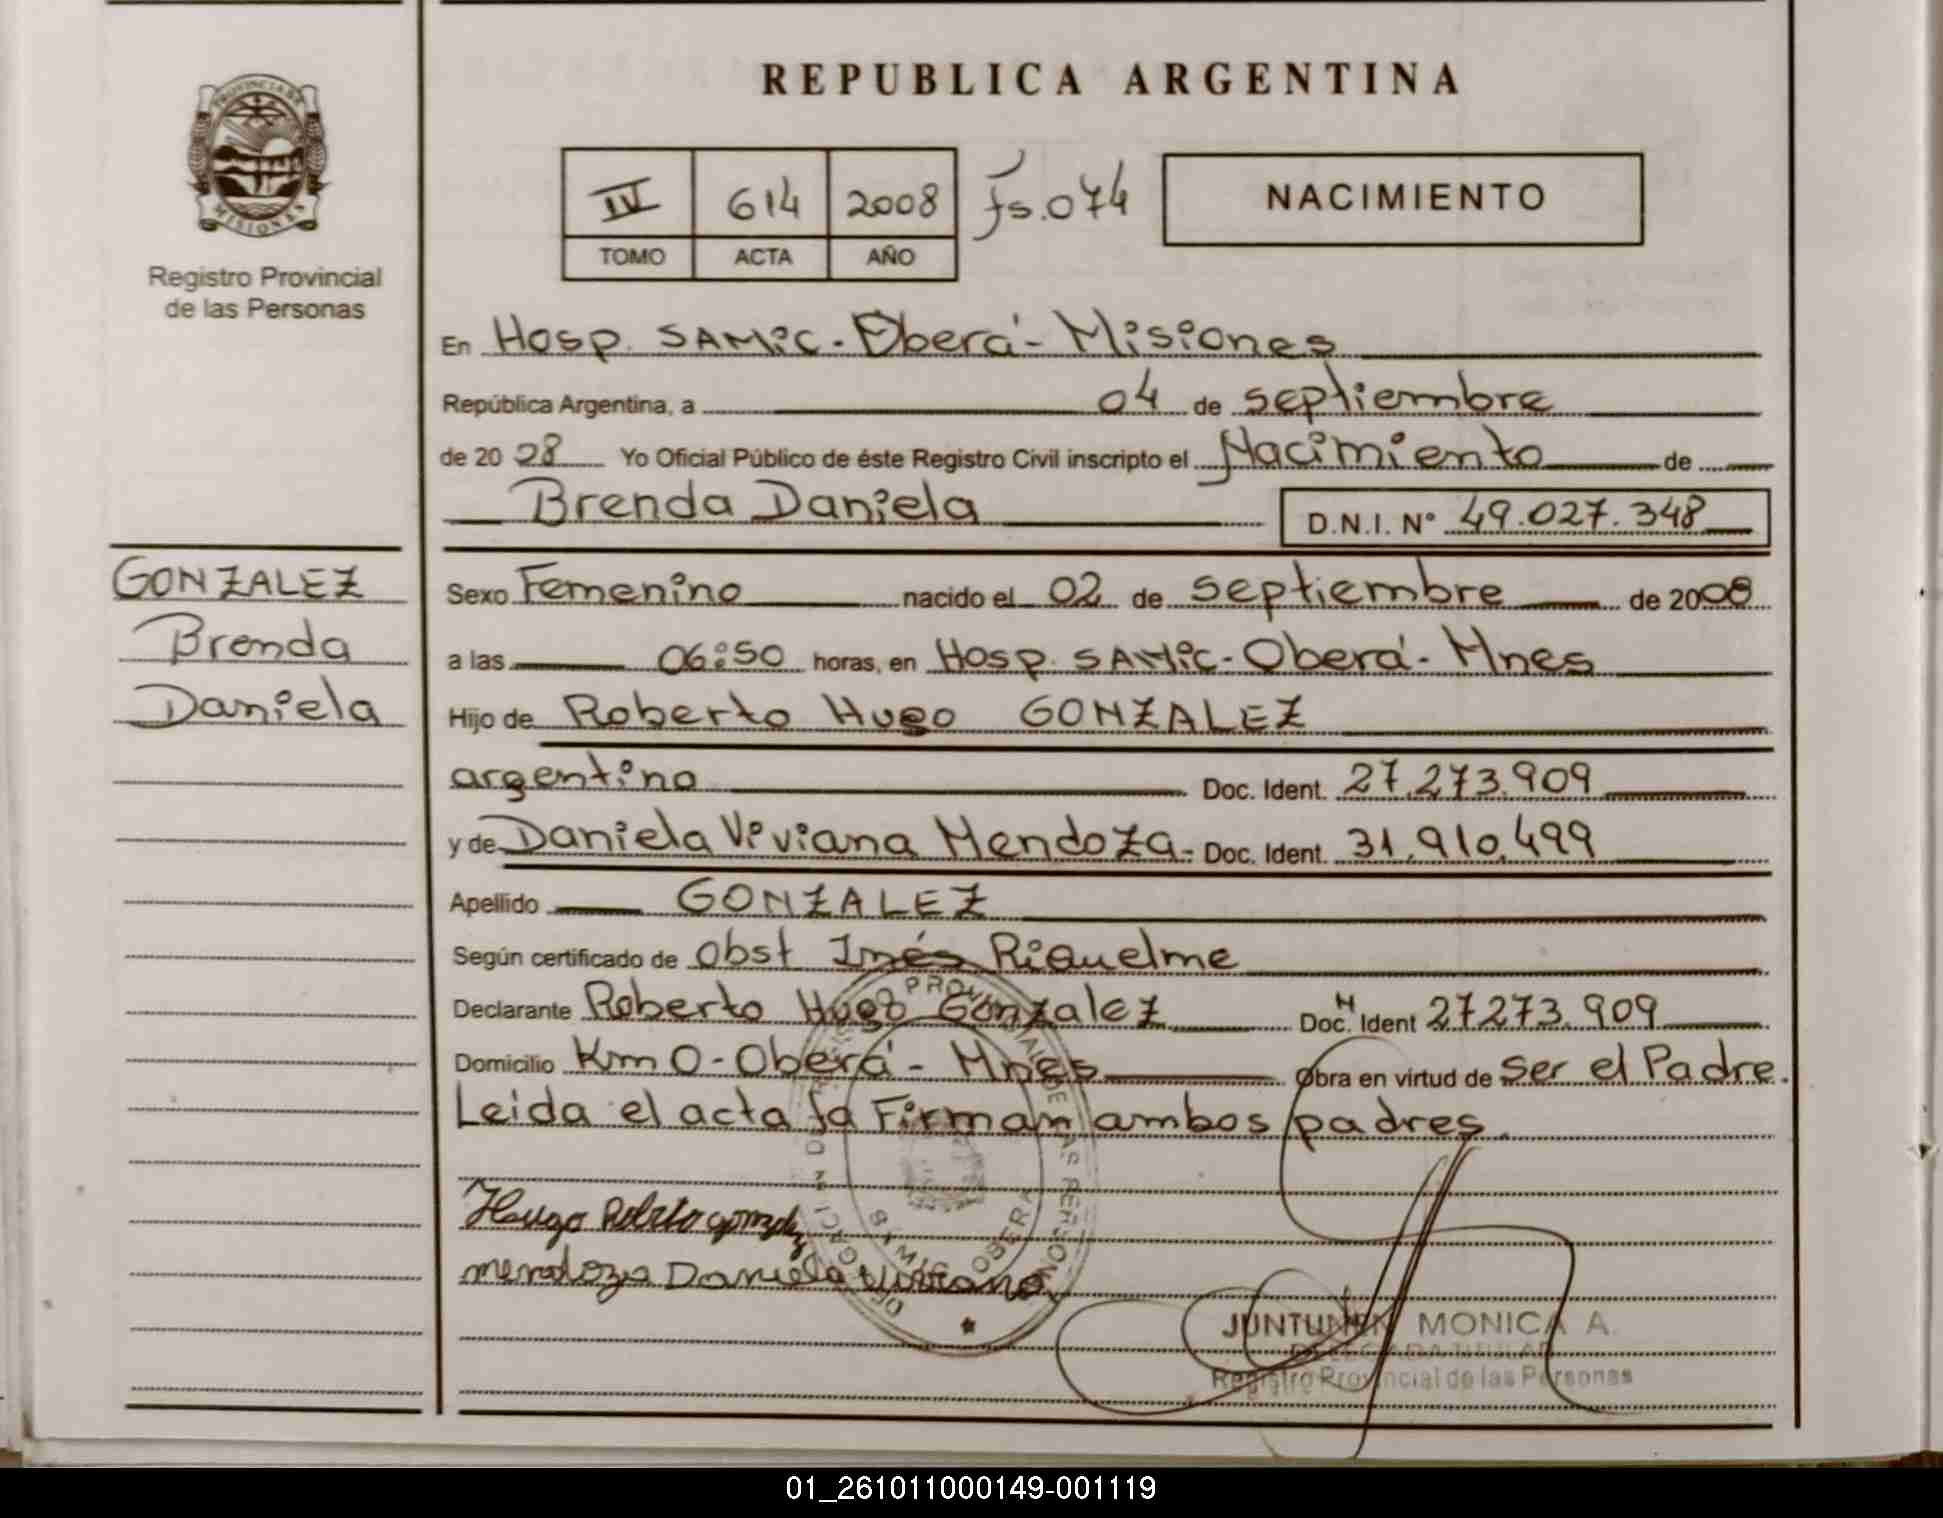 REPUBLICA ARGENTINA
PROVINCIA DE
MISIONES
Registro Provincial
de las Personas
IV 614 2008 Fs.074
TOMO ACTA AÑO
NACIMIENTO
En Hosp. SAMiC - Oberá - Misiones
República Argentina, a 04 de septiembre
de 2008 Yo Oficial Público de éste Registro Civil inscripto el Nacimiento de
Brenda Daniela D.N.I. N° 49.027.348
GONZALEZ
Brenda
Daniela
Sexo Femenino nacido el 02 de septiembre de 2008
a las 06:50 horas, en Hosp. SAMiC - Oberá - Mnes
Hijo de Roberto Hugo GONZALEZ
argentino Doc. Ident. 27.273.909
y de Daniela Viviana Mendoza - Doc. Ident. 31.910.499
Apellido GONZALEZ
Según certificado de Obst Inés Riquelme
Declarante Roberto Hugo Gonzalez Doc. Ident 27273.909
Domicilio Km 0 - Oberá - Mnes Obra en virtud de ser el Padre.
Leida el acta la Firman ambos padres
Hugo Roberto gonzalez
mendoza Daniela Viviana
SAMIC OBERA
JUNTUNEN MONICA A.
DELEGADA TITULAR
Registro Provincial de las Personas
01_261011000149-001119